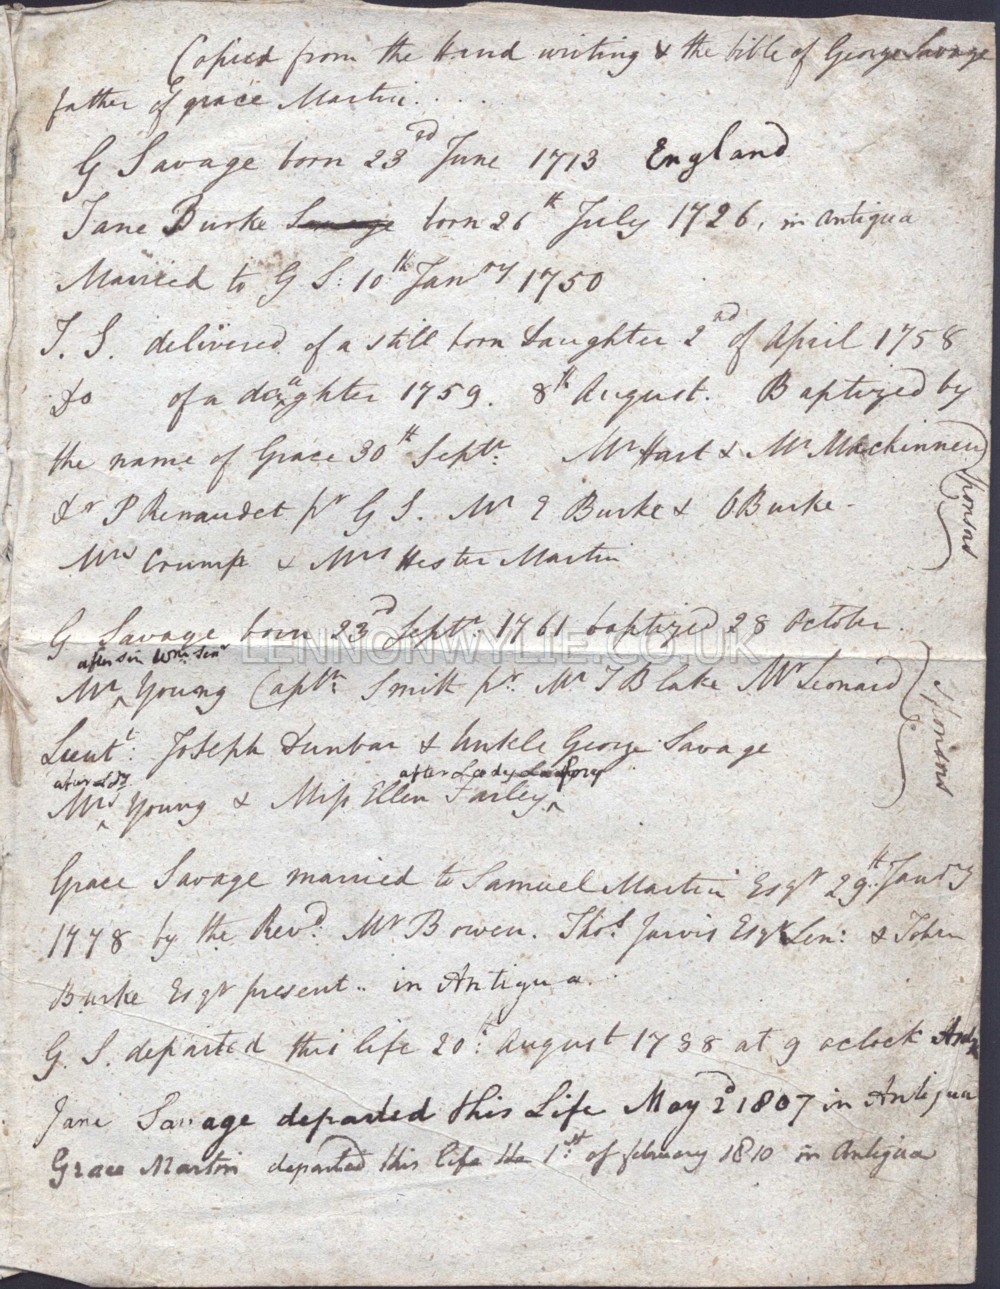 Copied from the Hand writing & the bible of George Savage
father of grace Martin . . .
G Savage born 23rd June 1713 England
Jane Burke Savage born 26th July 1726, in Antigua
Married to G S: 10th Janry 1750
J. S. delivered of a still born daughter 2nd of April 1758
Do of a daughter 1759. 8th August. Baptized by
the name of Grace 30th Septr. Mr Hart & Mr Mackinnen
Dr P Renaudet pr G S. Mr E Burke & O Burke.
Mrs Crump & Mrs Hester Martin
Sponsors
G Savage born 23rd Septr. 1761 baptized 28 October.
after Sir Wm.
Mr ^ Young Captn. Smith pr. Mr J Blake Mr Leonard
Lieut: Joseph Dunbar & Unkle George Savage
after Ldy after Lady
Mrs ^ Young & Miss Ellen Farley ^
Sponsors
Grace Savage married to Samuel Martin Esqr 29th. Janry
1778 by the Revd. Mr Bowen. Thos. Jarvis Esqr Sen: & John
Burke Esqr present .. in Antigua.
G. S. departed this life 20th: August 1788 at 9 oclock
Jane Savage departed this Life May 2d 1807 in Antigua
Grace Martin departed this life the 1st. of february 1810 in Antigua
LENNONWYLIE.CO.UK